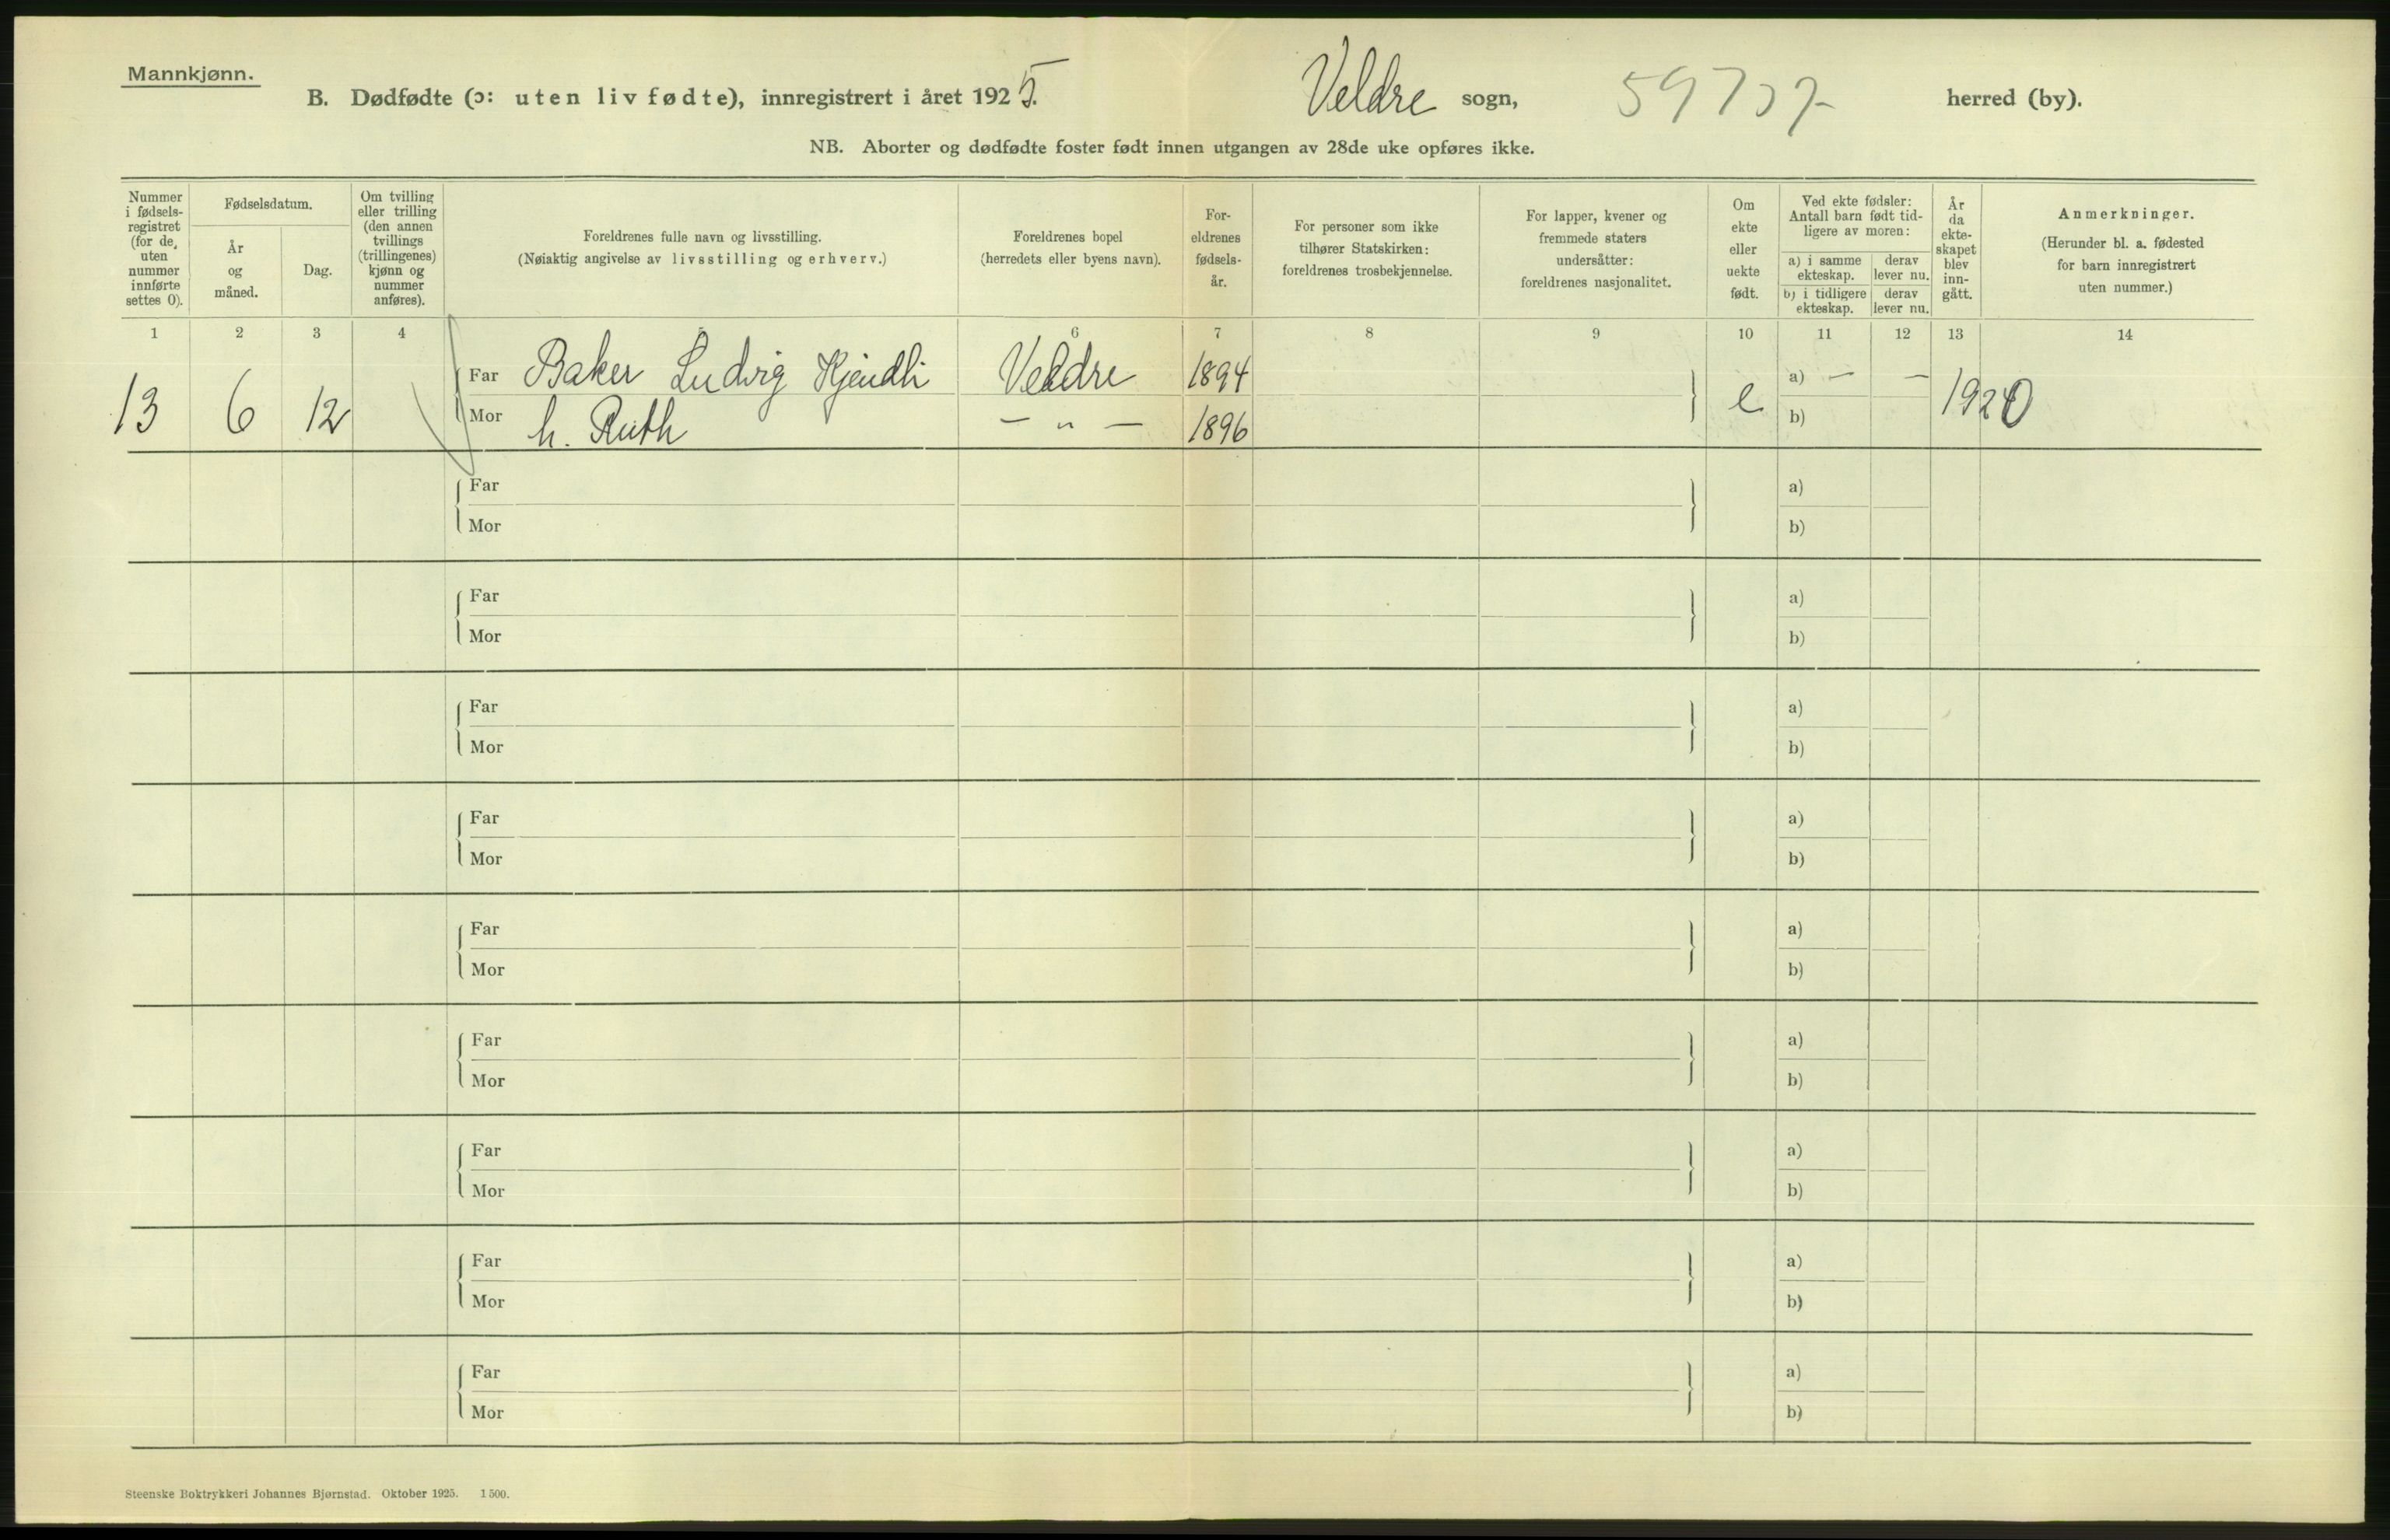 Mannkjønn.
B. Dødfødte (ɔ: uten liv fødte), innregistrert i året 1925. Veldre sogn, herred (by).
NB. Aborter og dødfødte foster født innen utgangen av 28de uke opføres ikke.
Nummer
i fødsels-
registret
(for de
uten
nummer
innførte
settes 0).
Fødselsdatum.
År
og
måned.
Dag.
Om tvilling
eller trilling
(den annen
tvillings
(trillingenes)
kjønn og
nummer
anføres).
Foreldrenes fulle navn og livsstilling.
(Nøiaktig angivelse av livsstilling og erhverv.)
Foreldrenes bopel
(herredets eller byens navn).
For-
eldrenes
fødsels-
år.
For personer som ikke
tilhører Statskirken:
foreldrenes trosbekjennelse.
For lapper, kvener og
fremmede staters
undersåtter:
foreldrenes nasjonalitet.
Om
ekte
eller
uekte
født.
Ved ekte fødsler:
Antall barn født tid-
ligere av moren:
a) i samme
ekteskap.
derav
lever nu.
b) i tidligere
ekteskap.
derav
lever nu.
År
da
ekte-
skapet
blev
inn-
gått.
Anmerkninger.
(Herunder bl. a. fødested
for barn innregistrert
uten nummer.)
1 2 3 4 5 6 7 8 9 10 11 12 13 14
Far Baker Ludvig Veldre 1894 a) — —
13 6 12 e 1920
Mor h. Ruth — " — 1896 b)
Far a)
Mor b)
Far a)
Mor b)
Far a)
Mor b)
Far a)
Mor b)
Far a)
Mor b)
Far a)
Mor b)
Far a)
Mor b)
Far a)
Mor b)
Far a)
Mor b)
Steenske Boktrykkeri Johannes Bjørnstad. Oktober 1925. 1500.